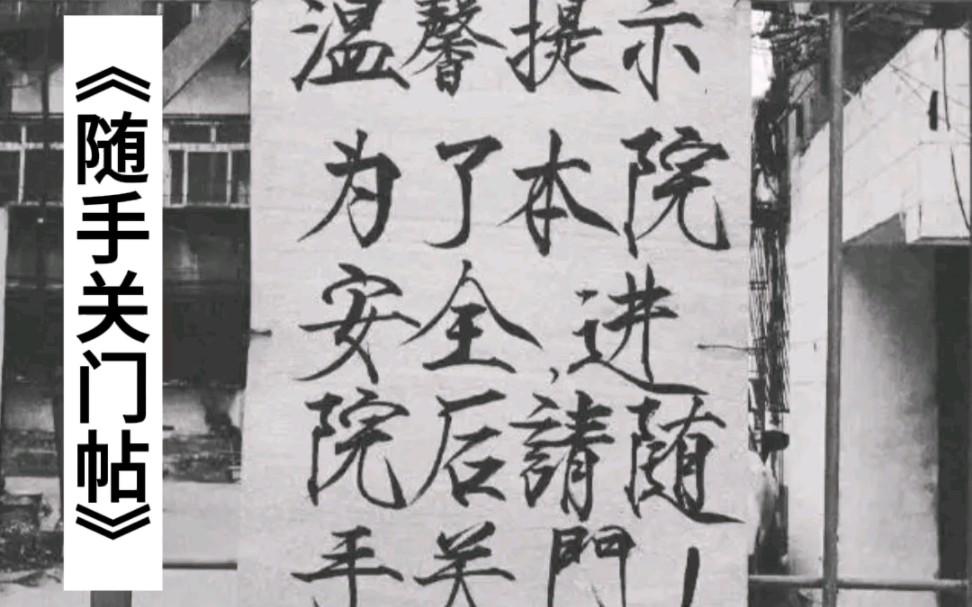 《随手关门帖》
温馨提示
为了本院
安全,进
院后請随
手关門!